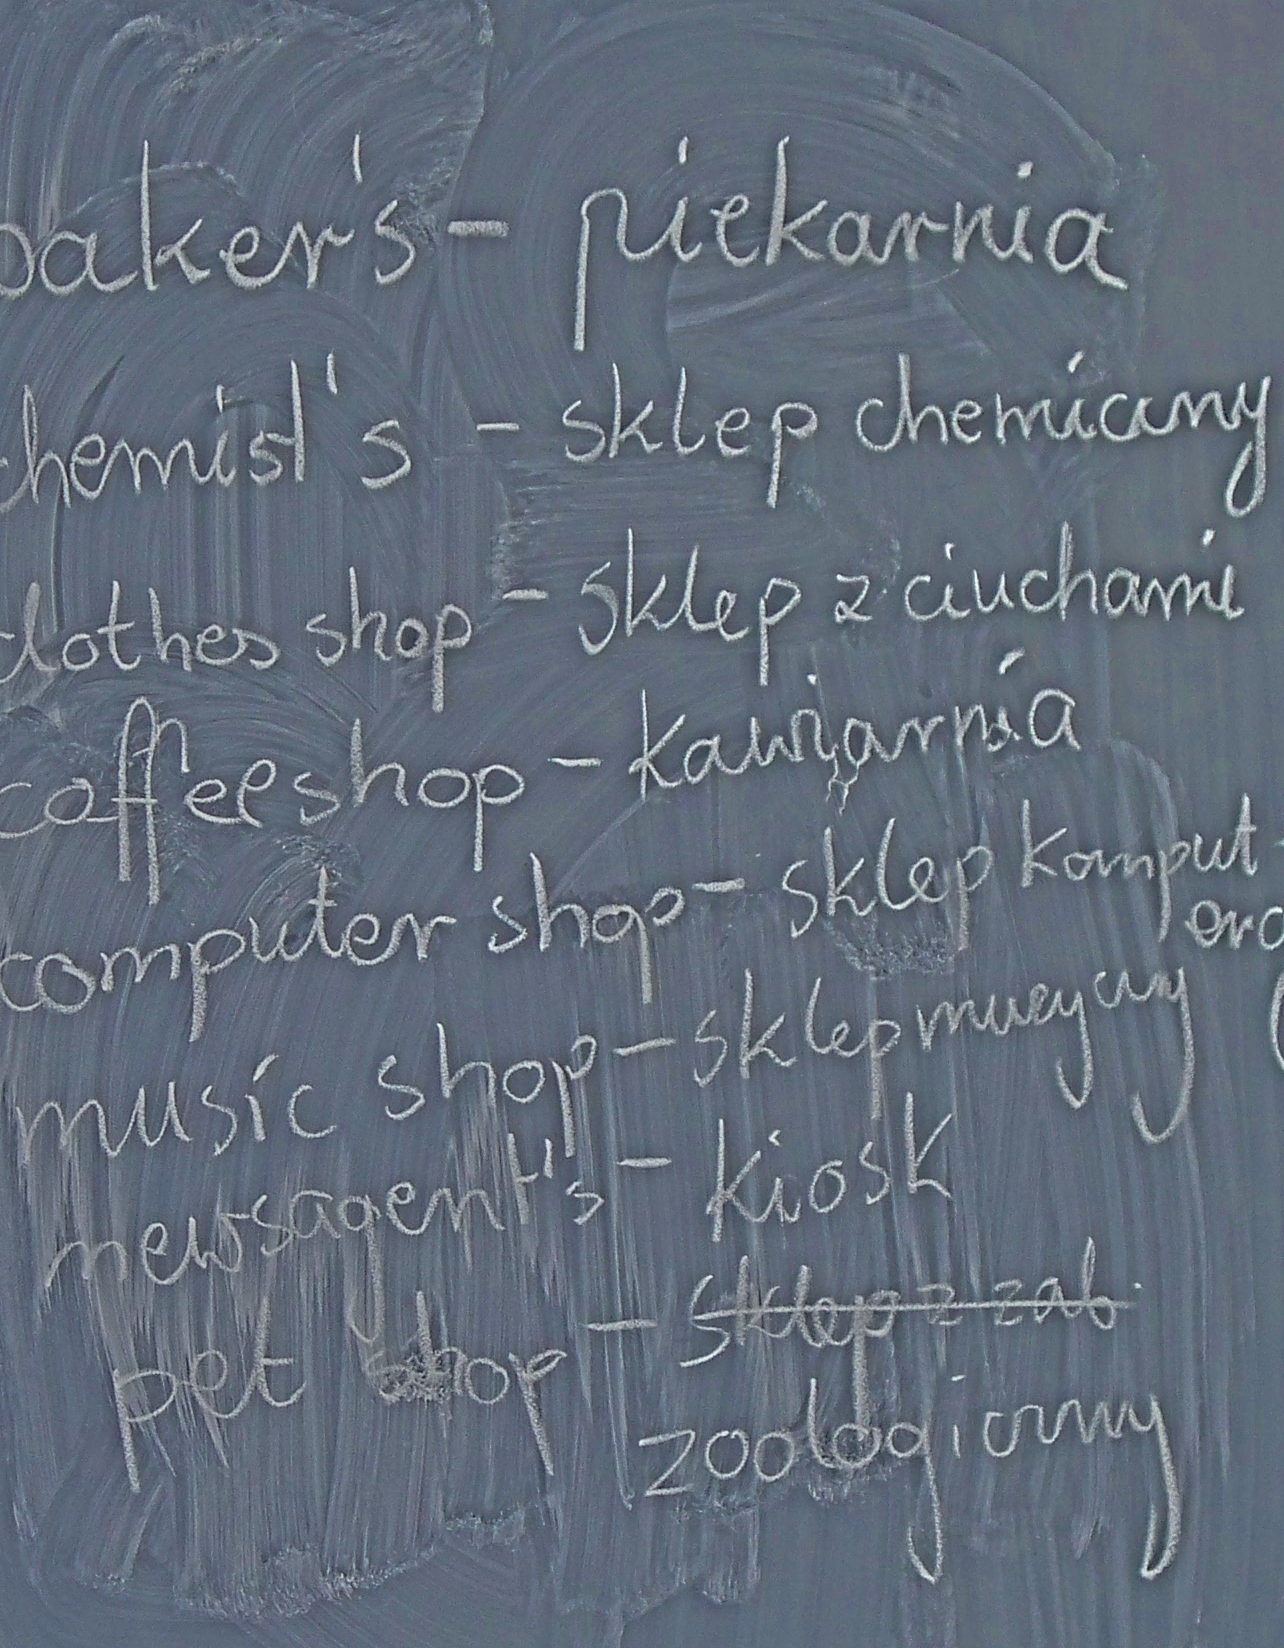 baker's - piekarnia
chemist's - sklep chemiczny
clothes shop - sklep z ciuchami
coffee shop - kawiarnia
computer shop - sklep komput-
ero
music shop - sklep muzyczny
newsagent's - kiosk
pet shop - sklep z zab.
zoologiczny